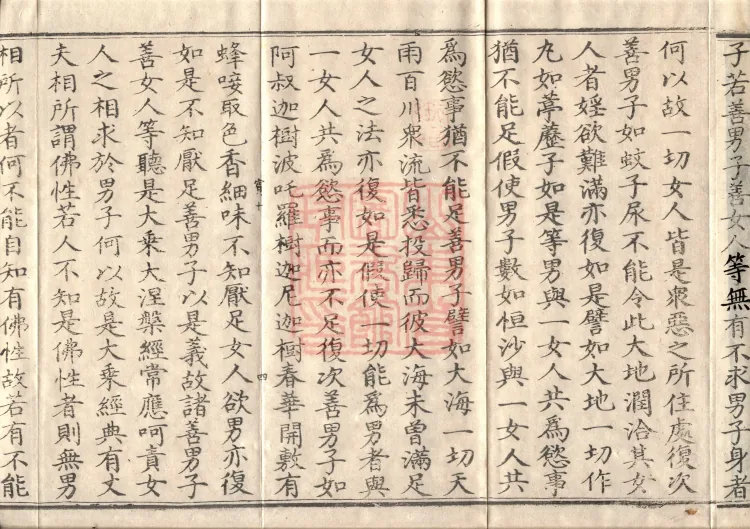 子若善男子善女人等無有不求男子身者
何以故一切女人皆是衆惡之所住處復次
善男子如蚊子尿不能令此大地潤洽其女
人者婬欲難滿亦復如是譬如大地一切作
丸如葶藶子如是等男與一女人共為慾事
猶不能足假使男子數如恒沙與一女人共
為慾事猶不能足善男子譬如大海一切天
雨百川衆流皆悉投歸而彼大海未曾滿足
女人之法亦復如是假使一切能為男者與
一女人共為慾事而亦不足復次善男子如
阿叔迦樹波吒羅樹迦尼迦樹春華開敷有
十 四
蜂唼取色香細味不知厭足女人欲男亦復
如是不知厭足善男子以是義故諸善男子
善女人等聽是大乘大涅槃經常應呵責女
人之相求於男子何以故是大乘經典有丈
夫相所謂佛性若人不知是佛性者則無男
相所以者何不能自知有佛性故若有不能